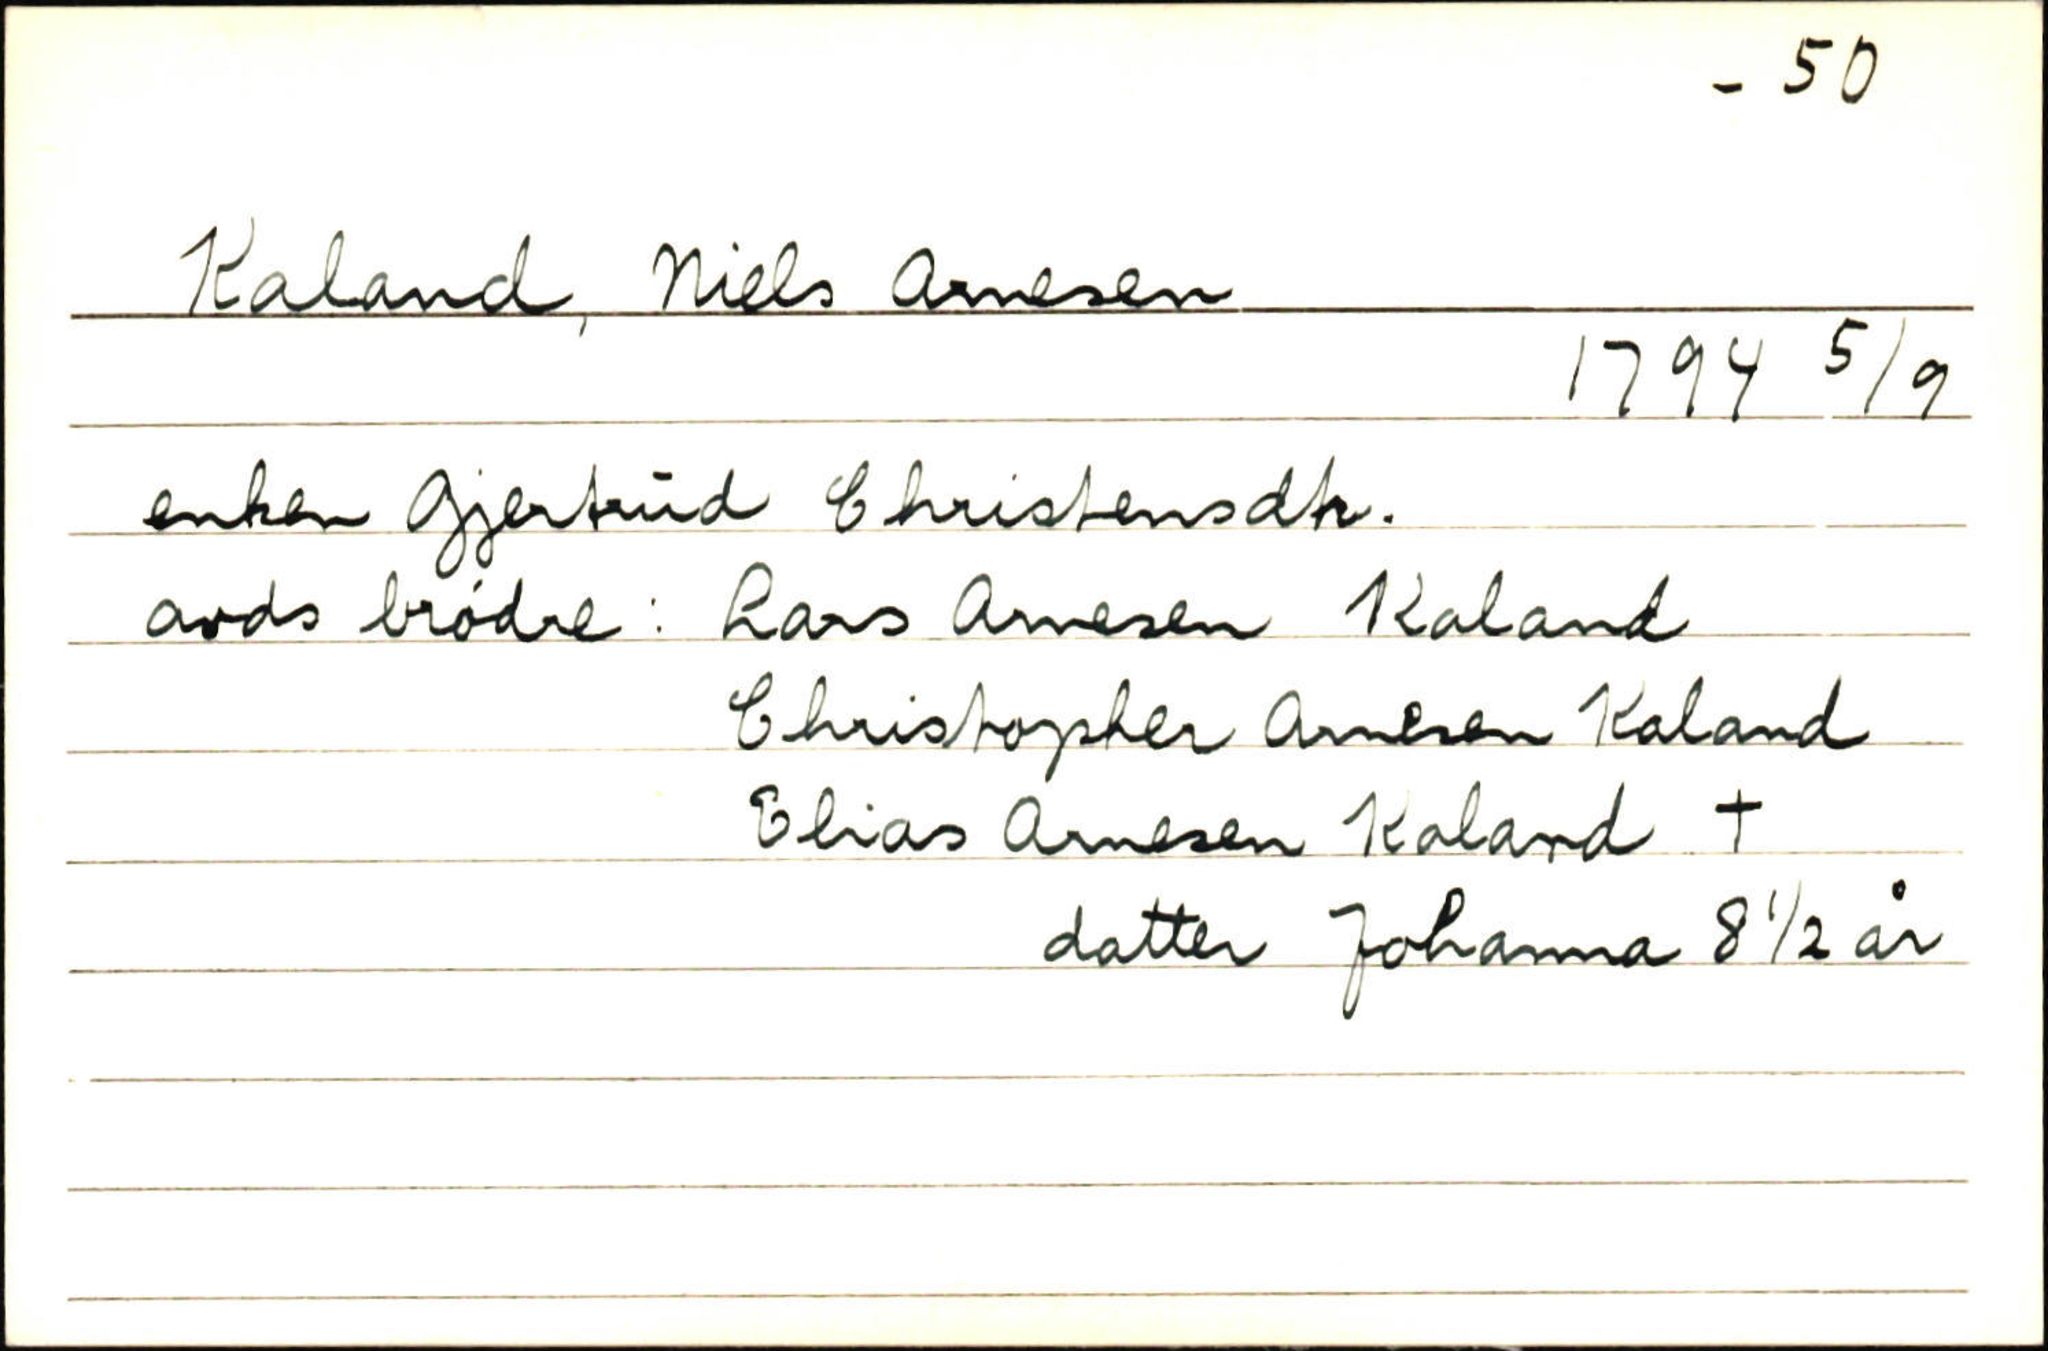 - 50
Kaland, Niels Arnesen
1794 5/9
enken Gjertrud Christensdtr.
avds brødre: Lars Arnesen Kaland
Christopher Arnesen Kaland
Elias Arnesen Kaland †
datter Johanna 8 1/2 år